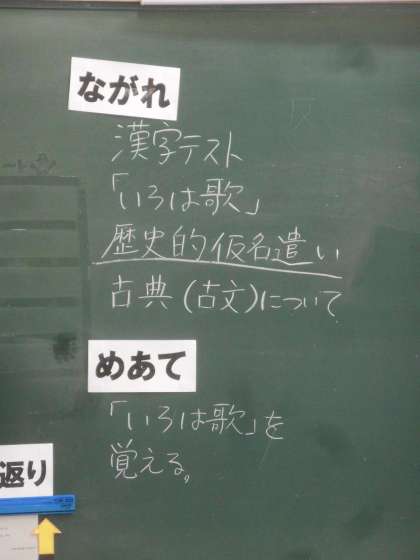 ながれ
漢字テスト
「いろは歌」
歴史的仮名遣い
古典(古文)について
めあて
「いろは歌」を
覚える。
返り